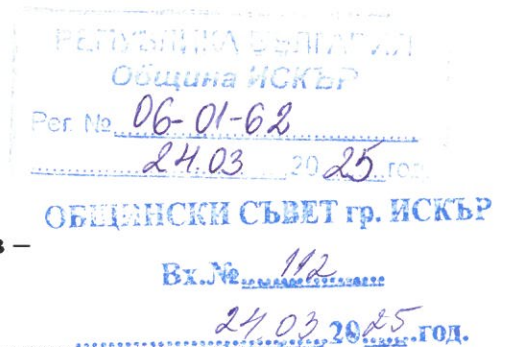 РЕПУБЛИКА БЪЛГАРИЯ
Община ИСКЪР
Рег. № 06-01-62
24.03 2025 год.
ОБЩИНСКИ СЪВЕТ гр. ИСКЪР
–
Вх.№ 112
24 03 2025 год.